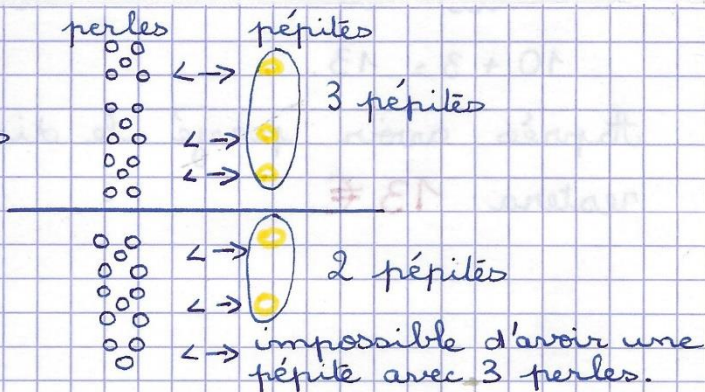 perles pépites
<-> 
<-> 3 pépites
<->
<-> 2 pépites
<->
<-> impossible d'avoir une
pépite avec 3 perles.